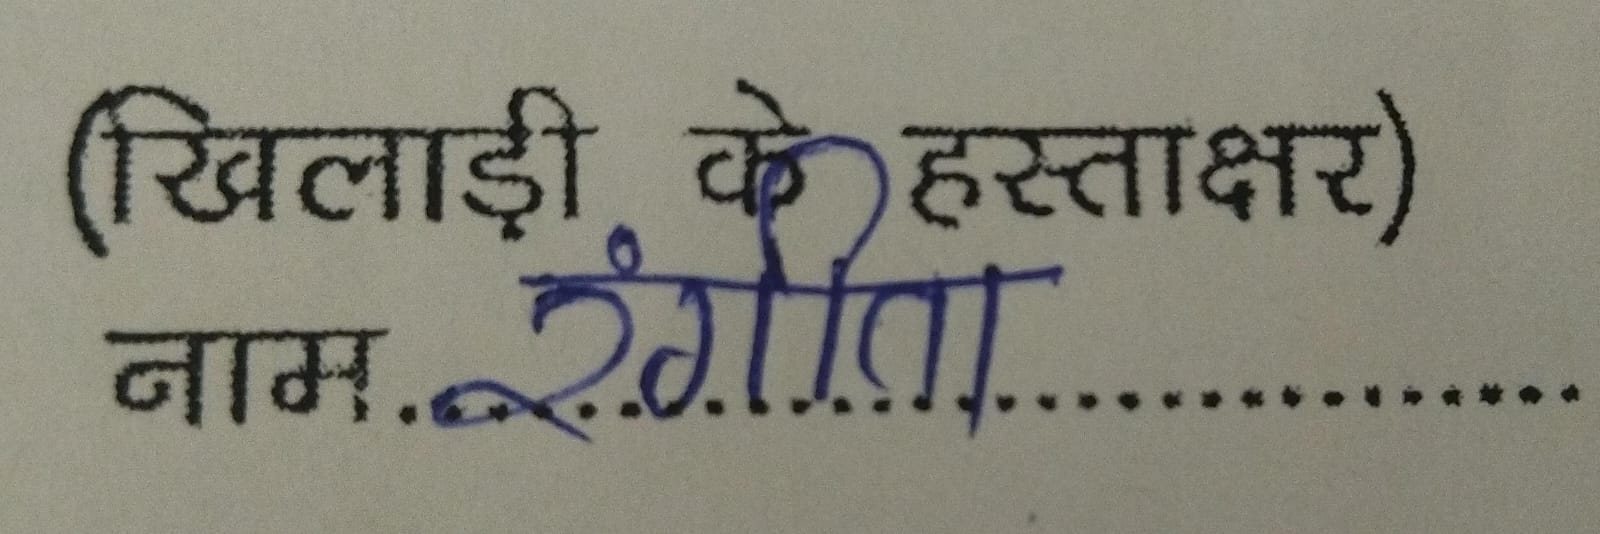 (खिलाड़ी के हस्ताक्षर)
नाम..रंगीता..............